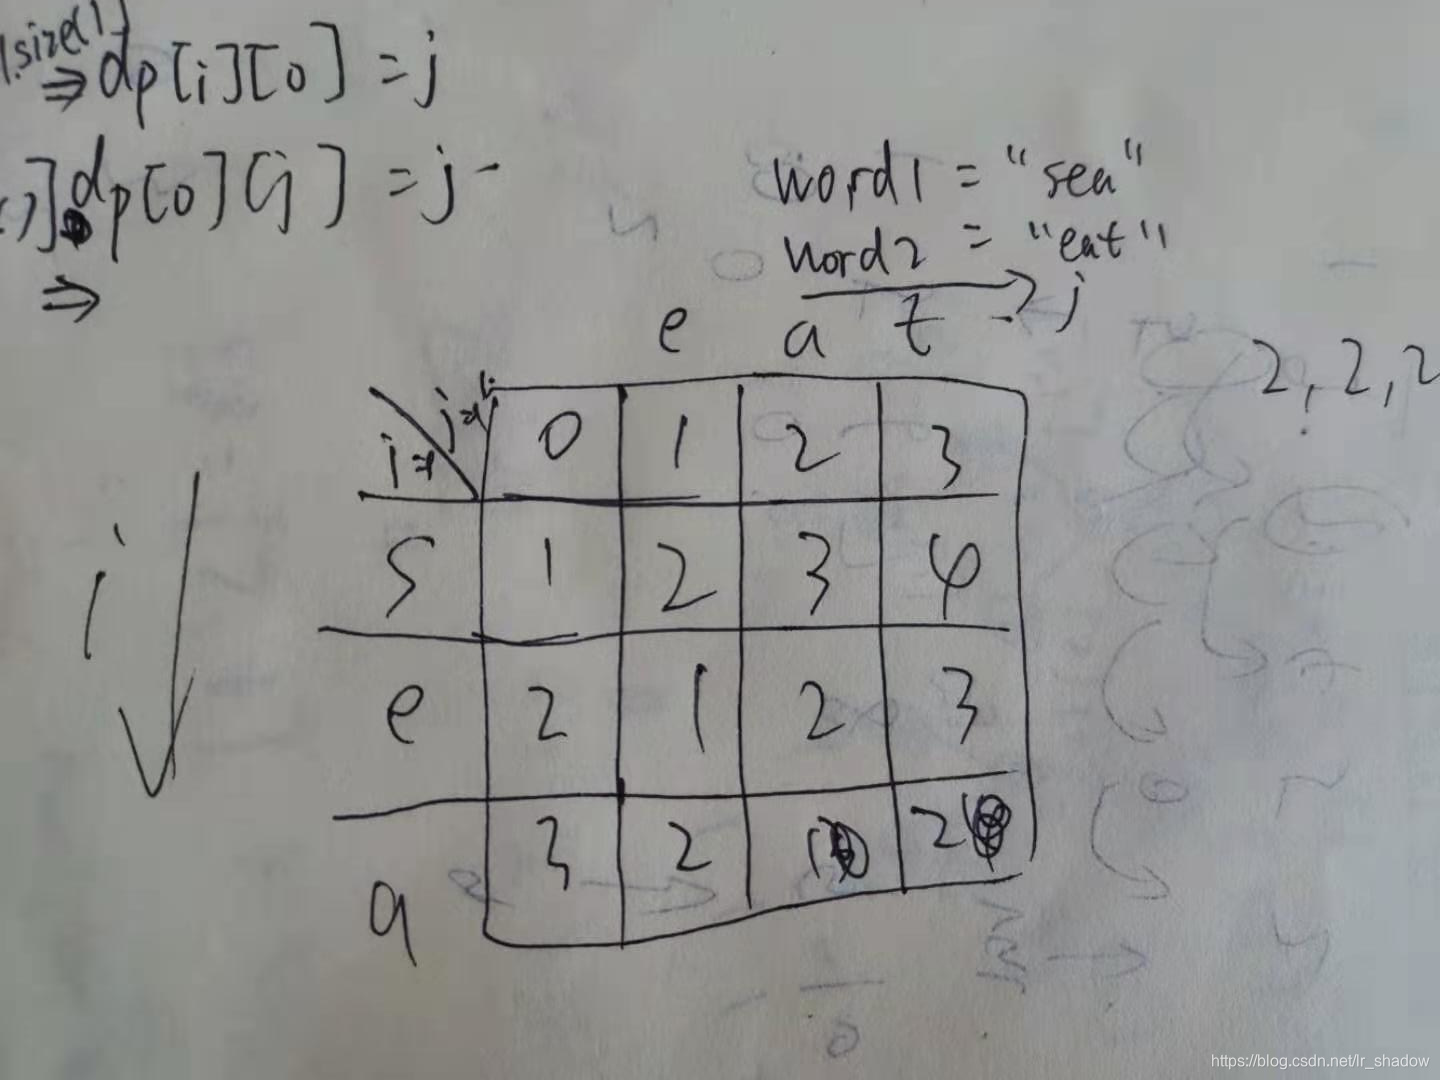 1.size()
⇒ dp[i][0] = j
]dp[0][j] = j
⇒
word1 = "sea"
word2 = "eat"
j
e a t
2, 2, 2
i= j=
0 1 2 3
i
s 1 2 3 4
e 2 1 2 3
a 3 2 1 2
https://blog.csdn.net/lr_shadow